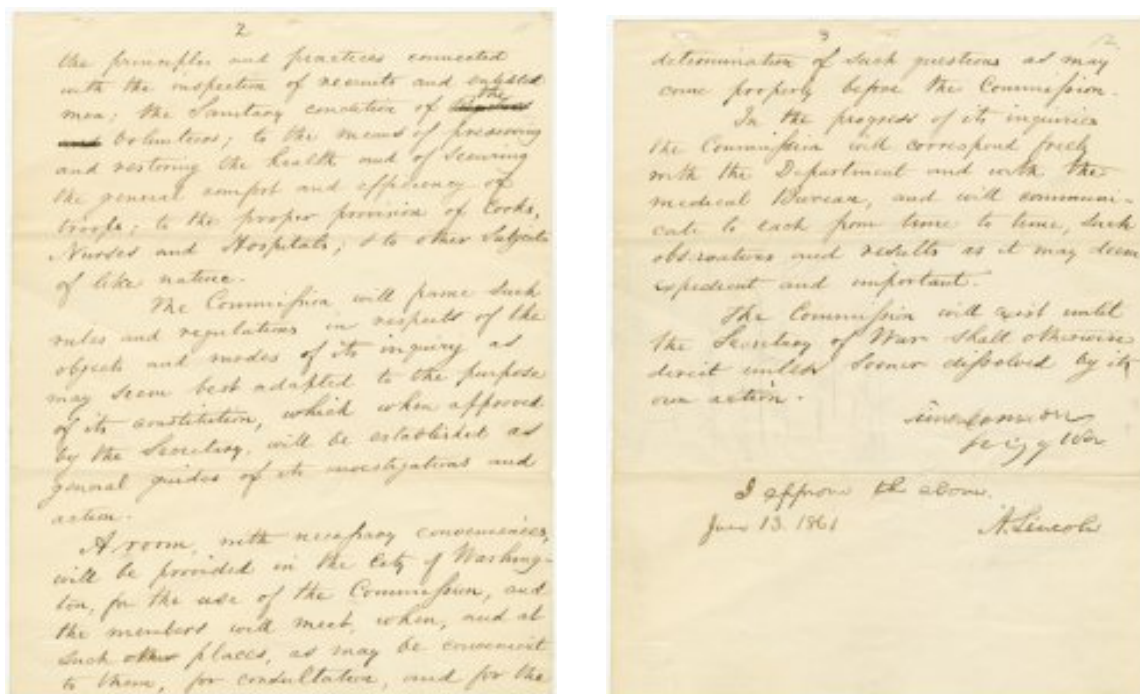 2
the principles and practices connected
with the inspection of recruits and enlisted
men; the Sanitary condition of the
Volunteers; to the means of preserving
and restoring the health and of securing
the general comfort and efficiency of
troops; to the proper provision of Cooks,
Nurses and Hospitals; & to other Subjects
of like nature.
The Commission will frame such
rules and regulations in respects of the
objects and modes of its inquiry as
may seem best adapted to the purpose
of its constitution, which when approved
by the Secretary, will be established as
general guides of its investigations and
action.
A room, with necessary conveniences,
will be provided in the City of Washing-
ton, for the use of the Commission, and
the members will meet, when, and at
such other places, as may be convenient
to them, for consultation, and for the
3
determination of such questions as may
come properly before the Commission.
In the progress of its inquiries
the Commission will correspond freely
with the Department and with the
medical Bureau, and will communi-
cate to each from time to time, such
observations and results as it may deem
expedient and important.
The Commission will exist until
the Secretary of War shall otherwise
direct unless sooner dissolved by its
own action.
Simon Cameron
War
I approve the above.
June 13, 1861
A. Lincoln